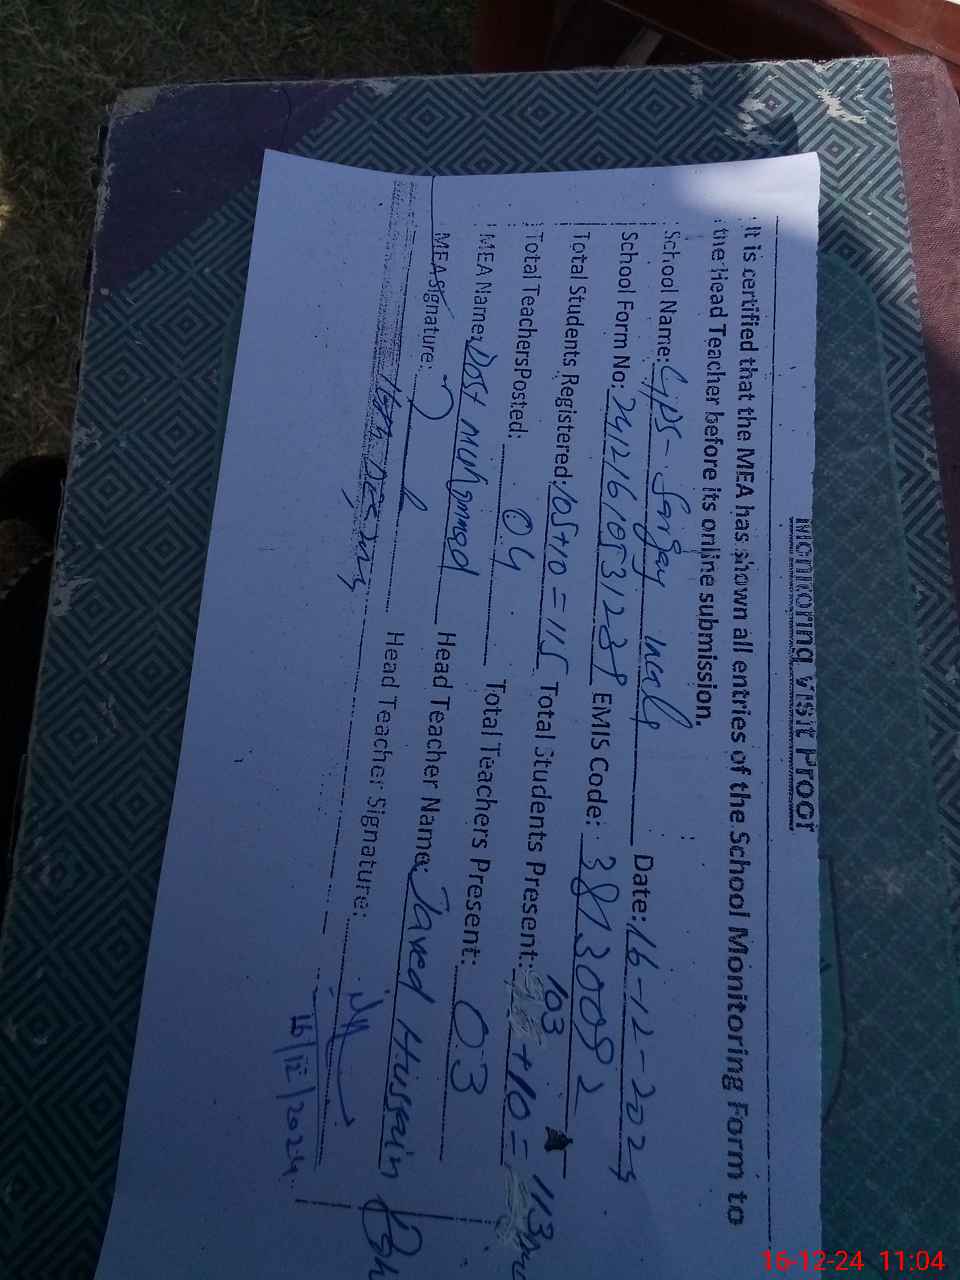 Monitoring Visit Proof
It is certified that the MEA has shown all entries of the School Monitoring Form to
the Head Teacher before its online submission.
School Name: GPS- Sargay Date: 16-12-2024
School Form No: EMIS Code:
Total Students Registered: 105+10 = 115 Total Students Present: 103 +10 = 113
Total Teachers Posted: 04 Total Teachers Present: 03
MEA Name: Dost Muhammad Head Teacher Name: Javed Hussain
MEA Signature: Head Teacher Signature:
16/12/2024
16-12-24 11:04